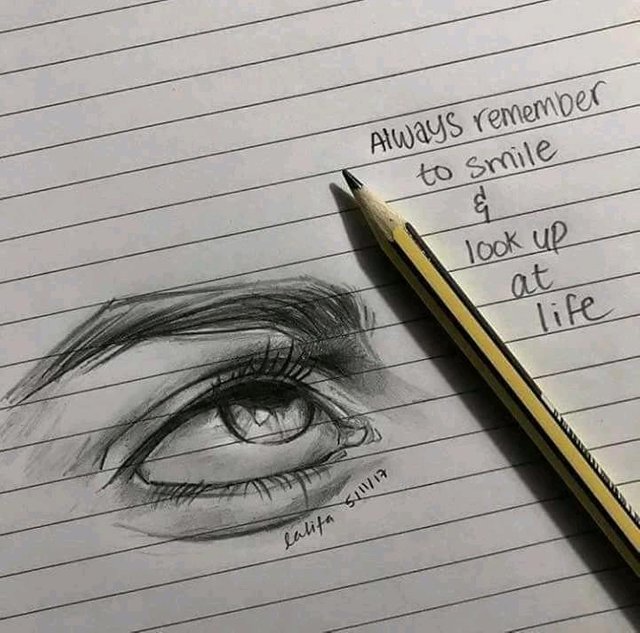 Always remember
to smile
&
look up
at
life
lalita 5/11/17